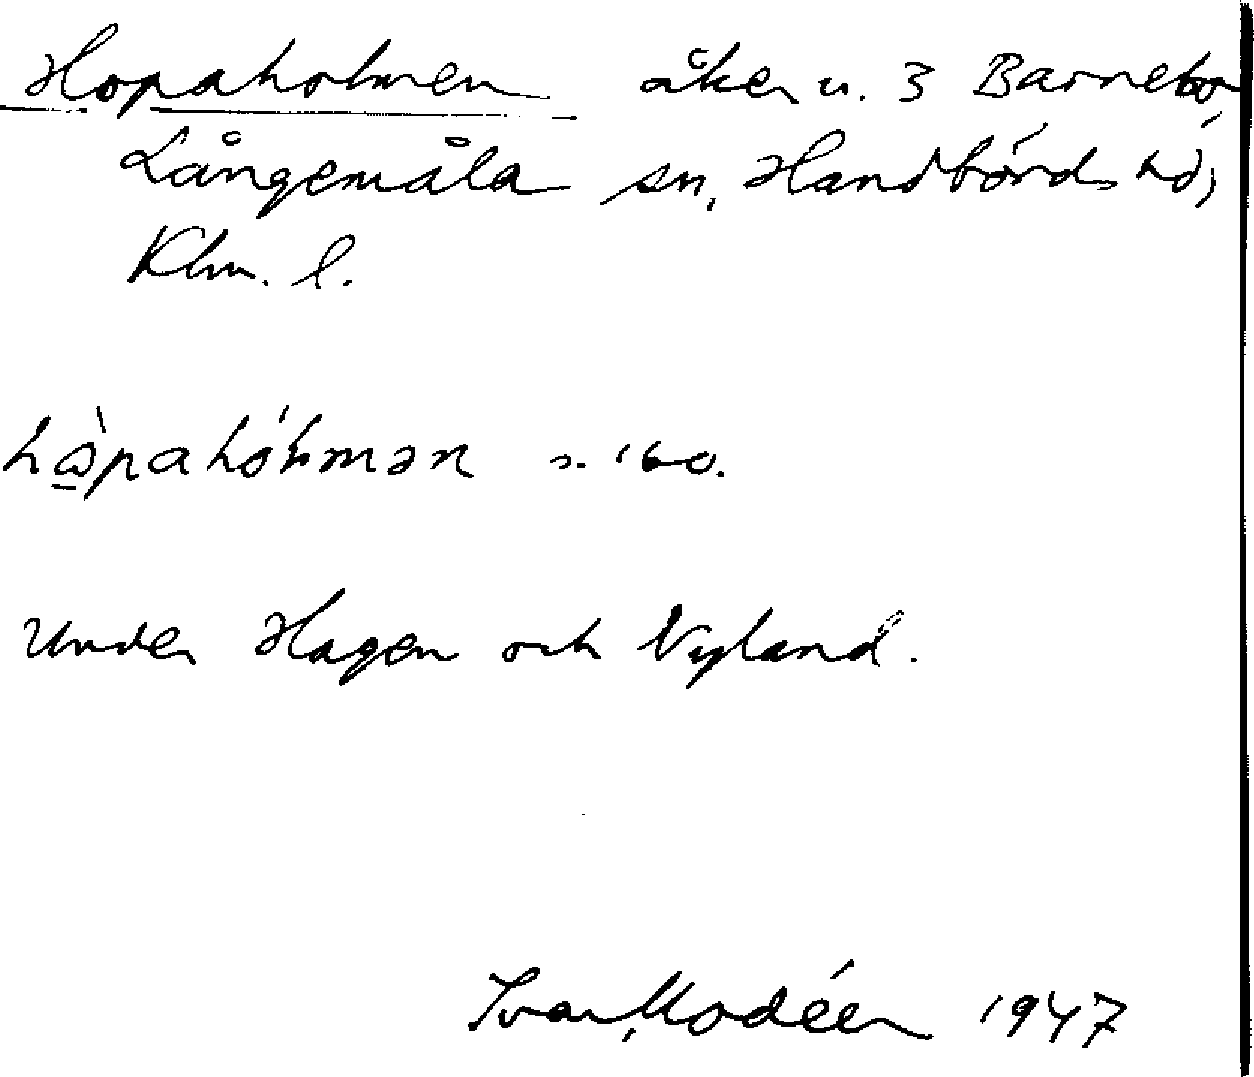 Hopaholmen åker u. 3 Barnebo,
Långemåla sn, Handbörds hd,
Klm. l.
hòpahólmən n. 160.
Under Hagen och Nyland.
Ivar Modéer 1947